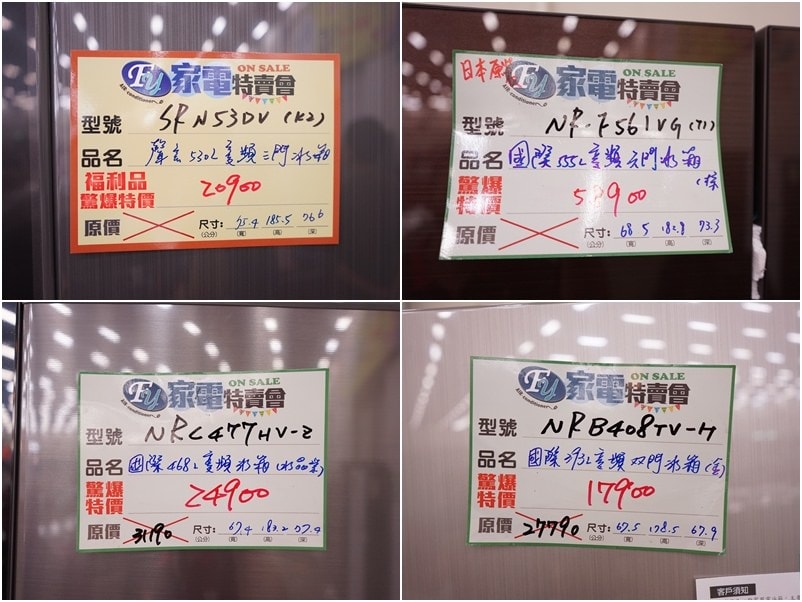 FU 家電特賣會 ON SALE
型號 SR N53DV (K2)
品名 聲寶 530L變頻三門冰箱
福利品
驚爆特價 20900
原價 尺寸: 75.4 185.5 76.6
(公分) (寬) (高) (深)
日本原裝
FU 家電特賣會 ON SALE
型號 NR-F561VG (T1)
品名 國際555L變頻六門冰箱
(棕
驚爆
特價
原價 尺寸: 68.5 182.8 73.3
(公分) (寬) (高) (深)
FU 家電特賣會 ON SALE
型號 NRC477HV-Z
品名 國際468L變頻冰箱(水晶紫)
驚爆
特價 24900
原價 31190 尺寸: 67.4 182.2
(公分) (寬) (高) (深)
FU 家電特賣會 ON SALE
型號 NRB408TV-H
品名 國際393L變頻双門冰箱(金)
驚爆
特價 17900
原價 27790 尺寸: 67.5 178.5 67.9
(公分) (寬) (高) (深)
客戶須知